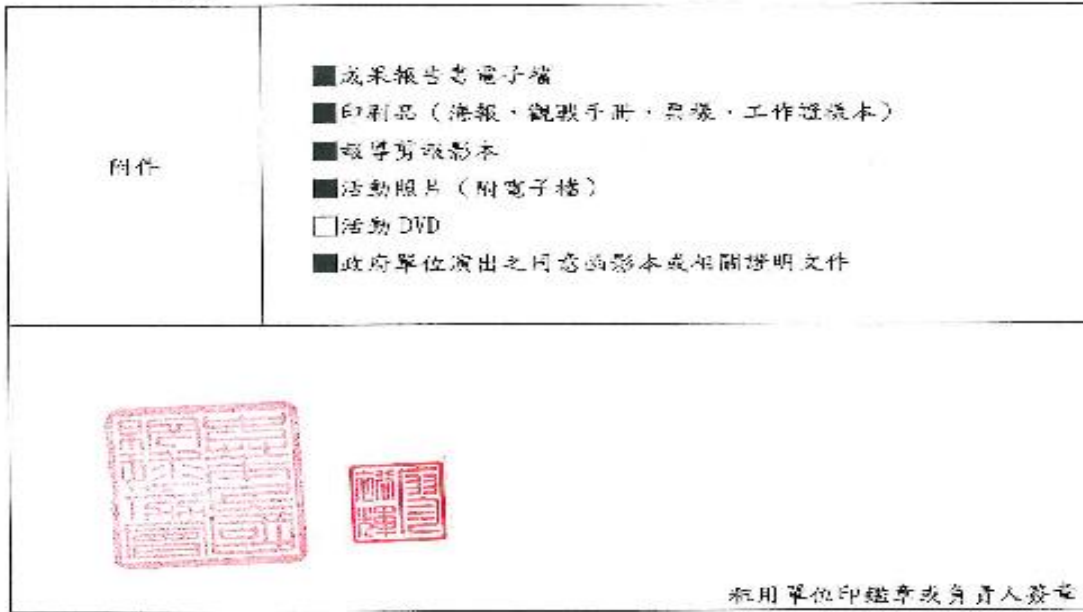 附件
■成果報告書電子檔
■印刷品（海報、觀戰手冊、票樣、工作證樣本）
■報導剪報影本
■活動照片（附電子檔）
□活動 DVD
■政府單位演出之同意函影本或相關證明文件
租用單位印鑑章或負責人簽章